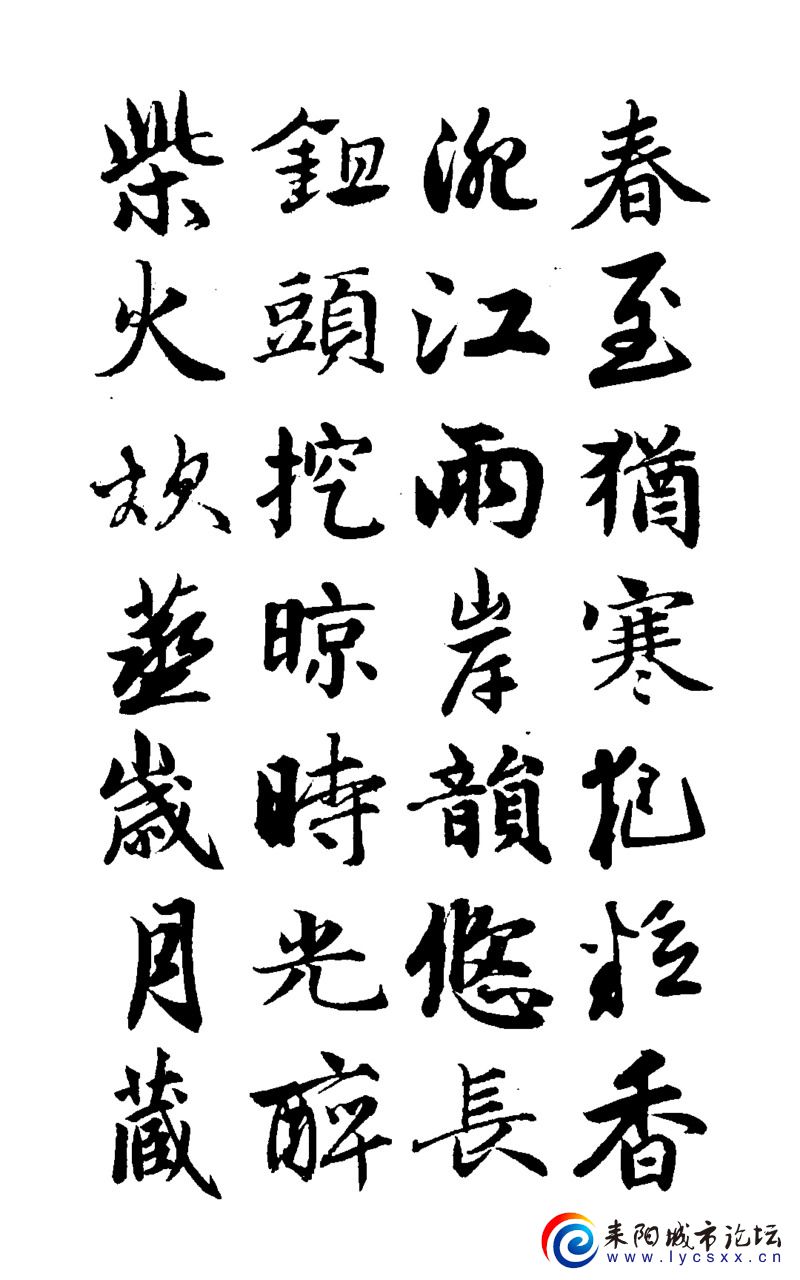 春至猶寒粒香
淝江兩岸韻悠長
鉏頭挖晾時光醉
柴火炊蒸歲月藏
耒阳城市论坛
www.lycsxx.cn